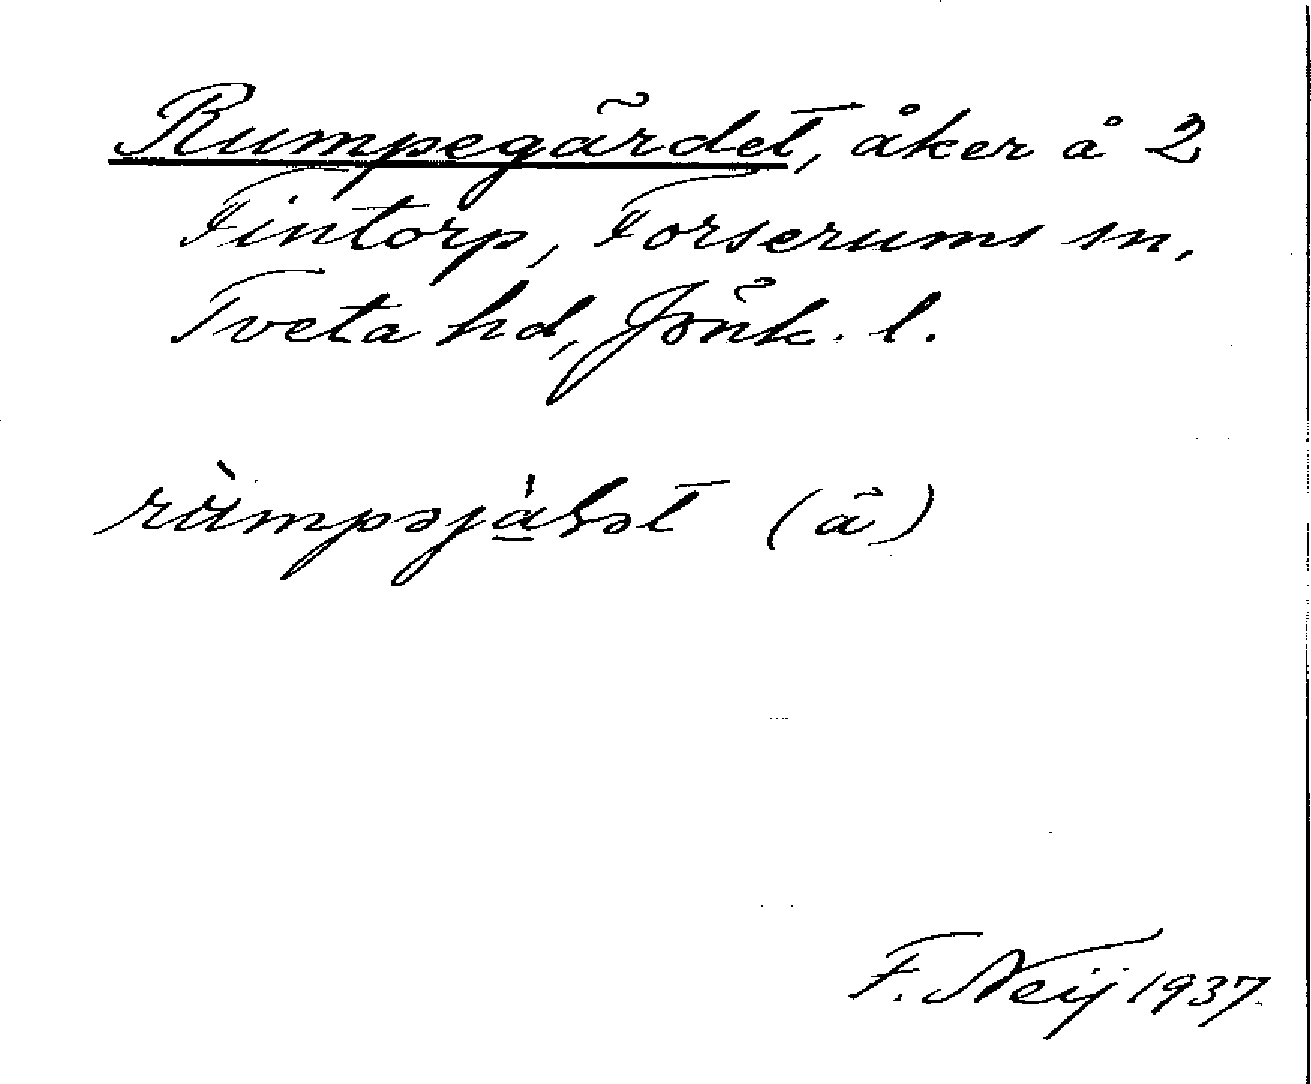 Rumpegärdet, åker å 2
Fintorp, Forserums sn,
Tveta hd, Jönk. l.
(ä)
F. Neij 1937.